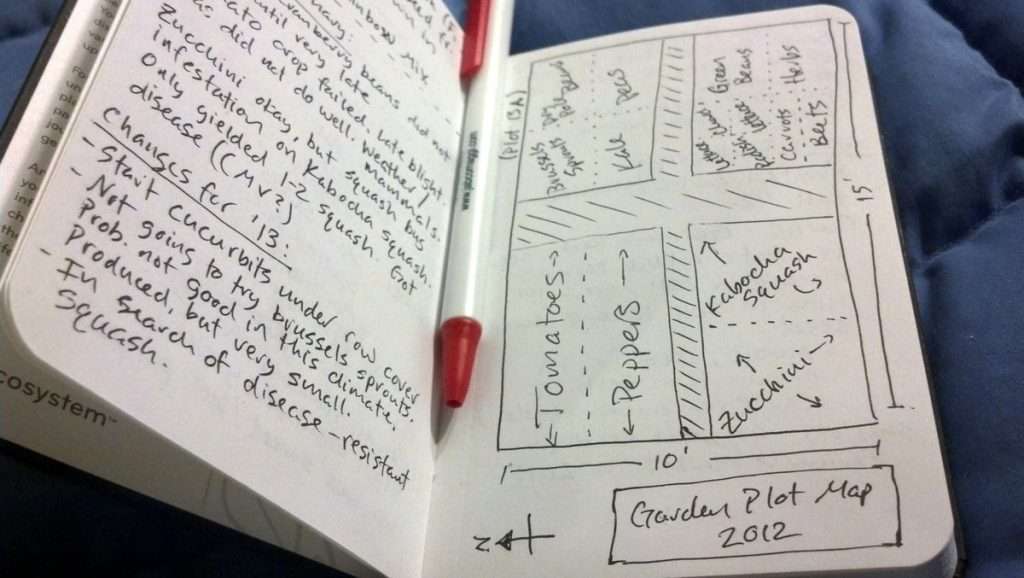 Mix
beans did not
until very late
crop failed. Late blight.
did not do well. Weather/
Zucchini okay, but squash bug
infestation on Kabocha squash.
Only yielded 1-2 squash. Got
disease (CMV?)
Changes for '13:
- Start cucurbits under row cover
- Not going to try brussels sprouts.
Prob. not good in this climate.
Produced, but very small.
- In search of disease-resistant
squash.
cosystem™
(Plot 13A)
Brussels
Sprouts
Pole Beans
Kale
Peas
Green
Beans
Carrots
Herbs
Beets
15'
← Tomatoes →
← Peppers →
Kabocha
Squash
Zucchini
10'
N
Garden Plot Map
2012